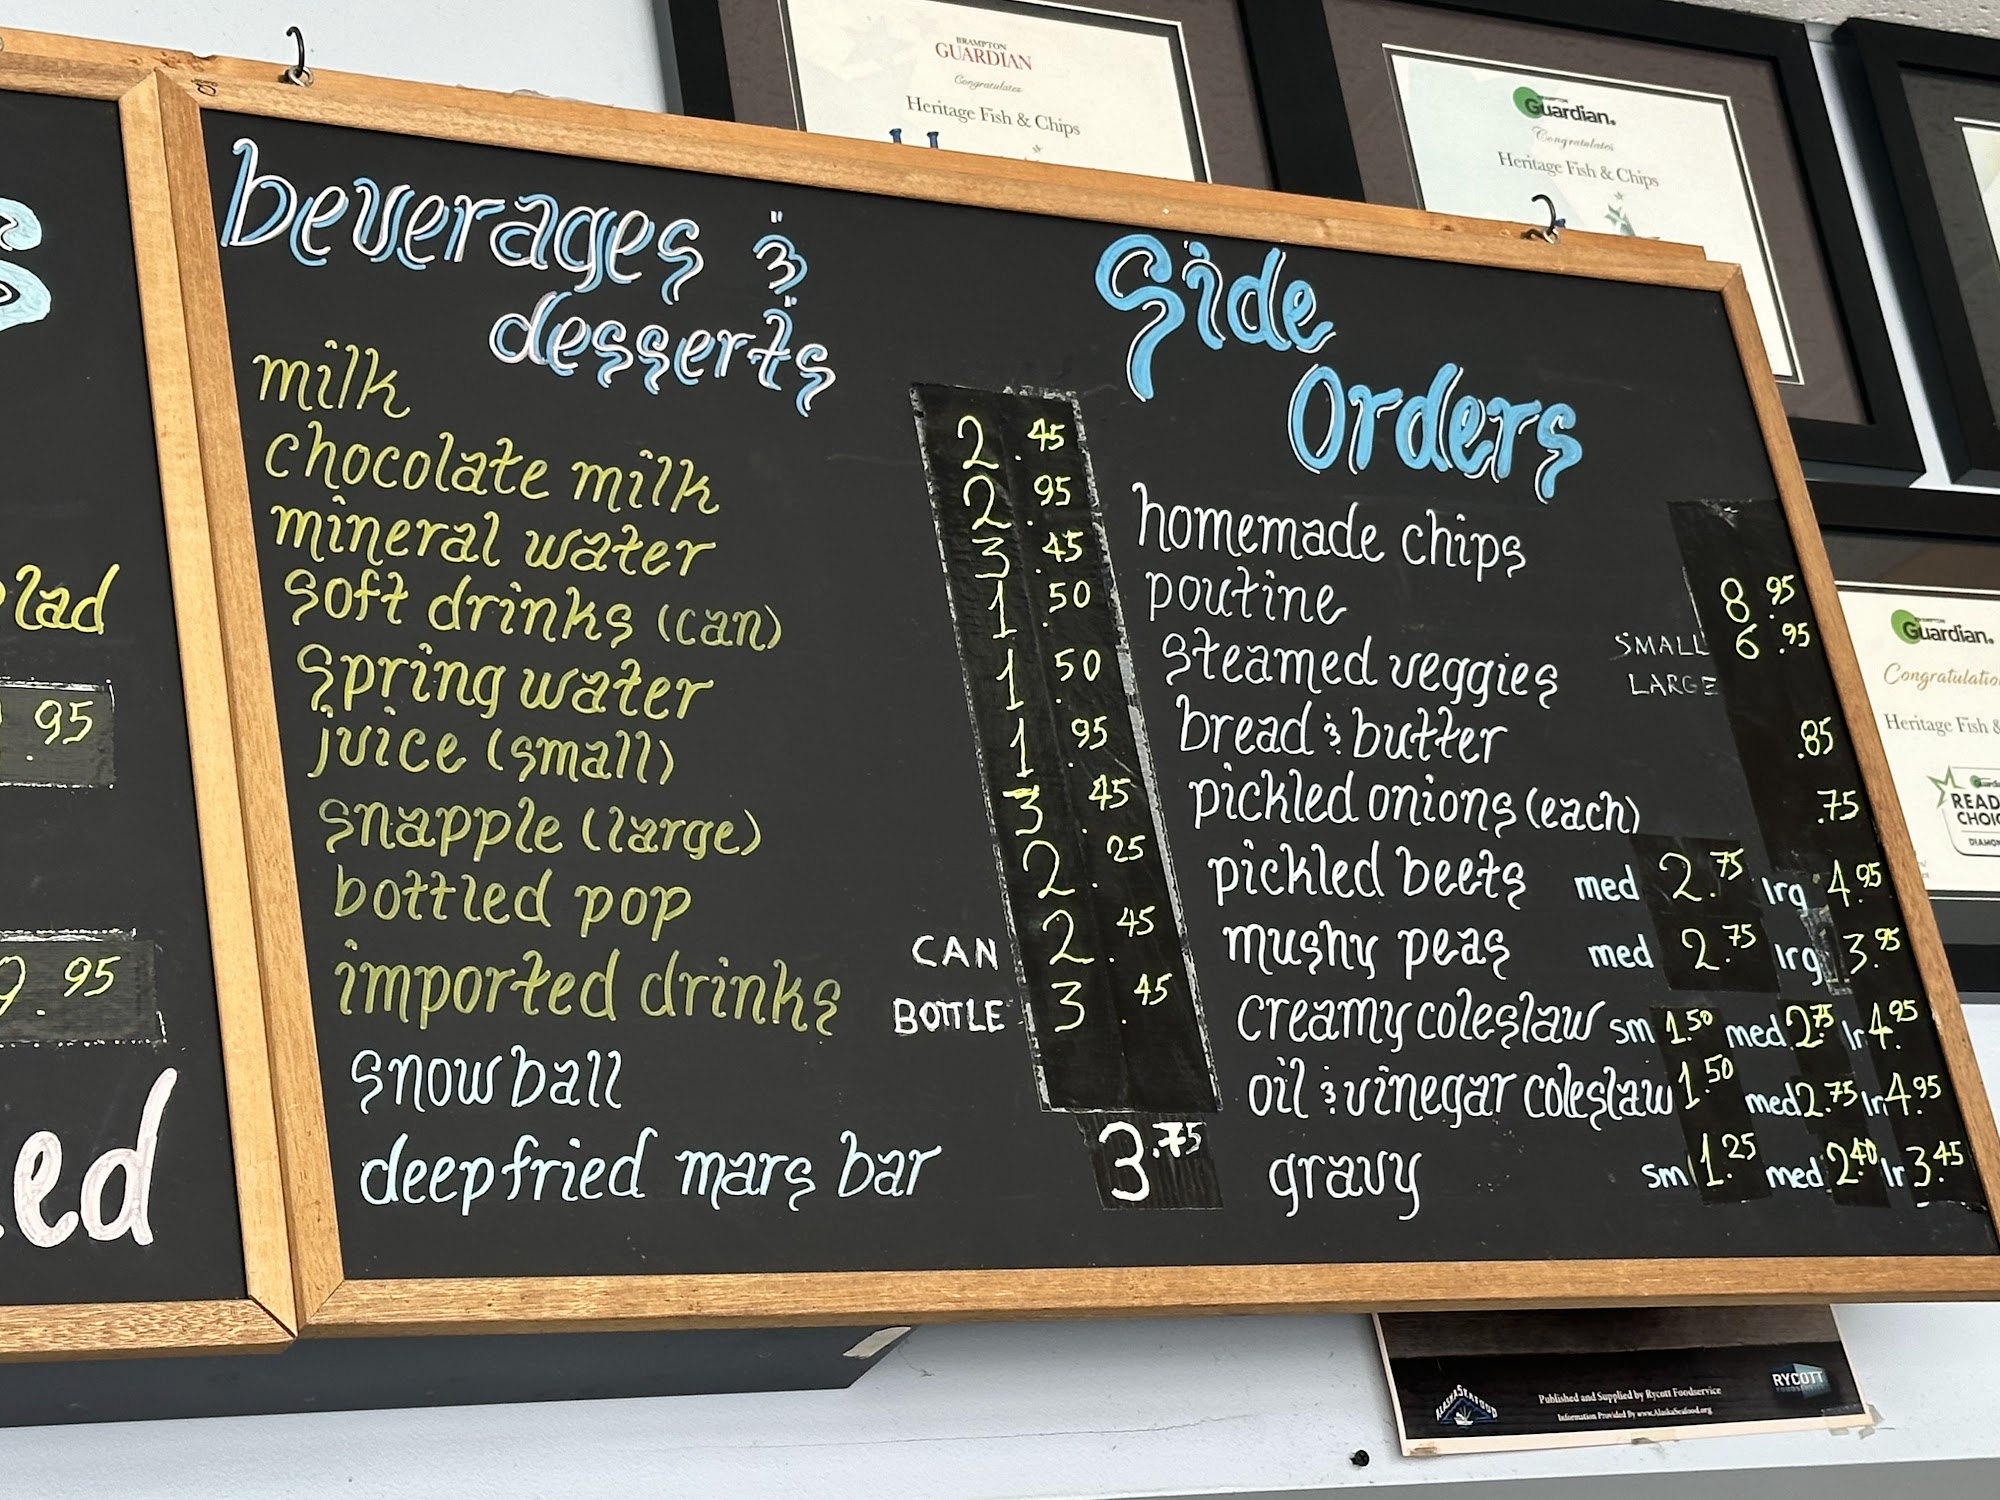 BRAMPTON
GUARDIAN
Congratulates
Heritage Fish & Chips
BRAMPTON
Guardian.
Congratulates
Heritage Fish & Chips
beverages &
desserts
milk 2.45
chocolate milk 2.95
mineral water 3.45
soft drinks (can) 1.50
spring water 1.50
juice (small) 1.95
snapple (large) 3.45
bottled pop 2.25
imported drinks CAN 2.45
BOTTLE 3.45
snowball
deepfried mars bar 3.75
Side
Orders
homemade chips
poutine 8.95
steamed veggies SMALL 6.95
LARGE
bread & butter .85
pickled onions (each) .75
pickled beets med 2.75 lrg 4.95
mushy peas med 2.75 lrg 3.95
creamy coleslaw sm 1.50 med 2.75 lr 4.95
oil & vinegar coleslaw 1.50 med 2.75 lr 4.95
gravy sm 1.25 med 2.40 lr 3.45
lad
.95
9.95
ed
BRAMPTON
Guardian.
Congratulatio
Heritage Fish &
READ
CHOIC
DIAMO
ALASKA SEAFOOD
Published and Supplied by Rycott Foodservice
Information Provided By www.AlaskaSeafood.org
RYCOTT
FOODSERVICE